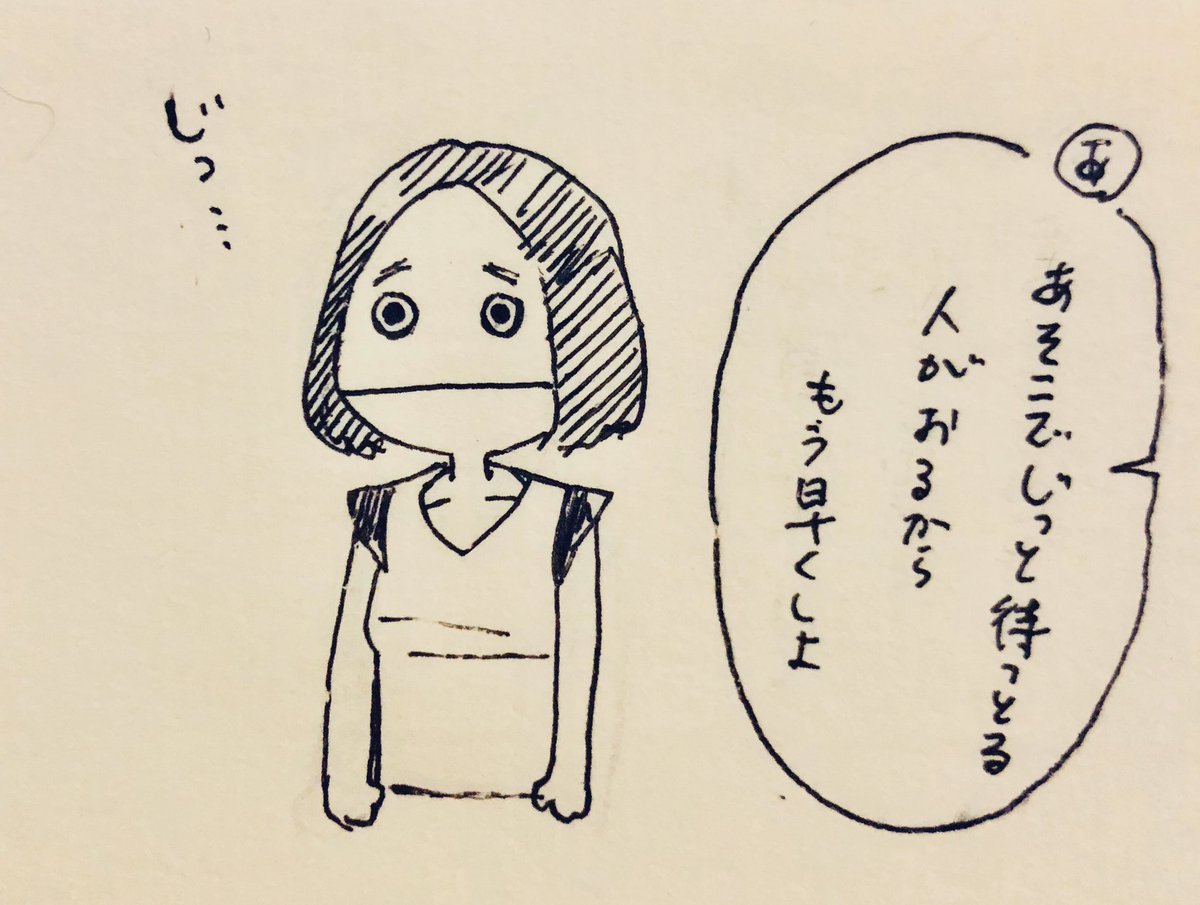 あ
あそこでじっと待っとる
人がおるから
もう早くしよ
じっ…